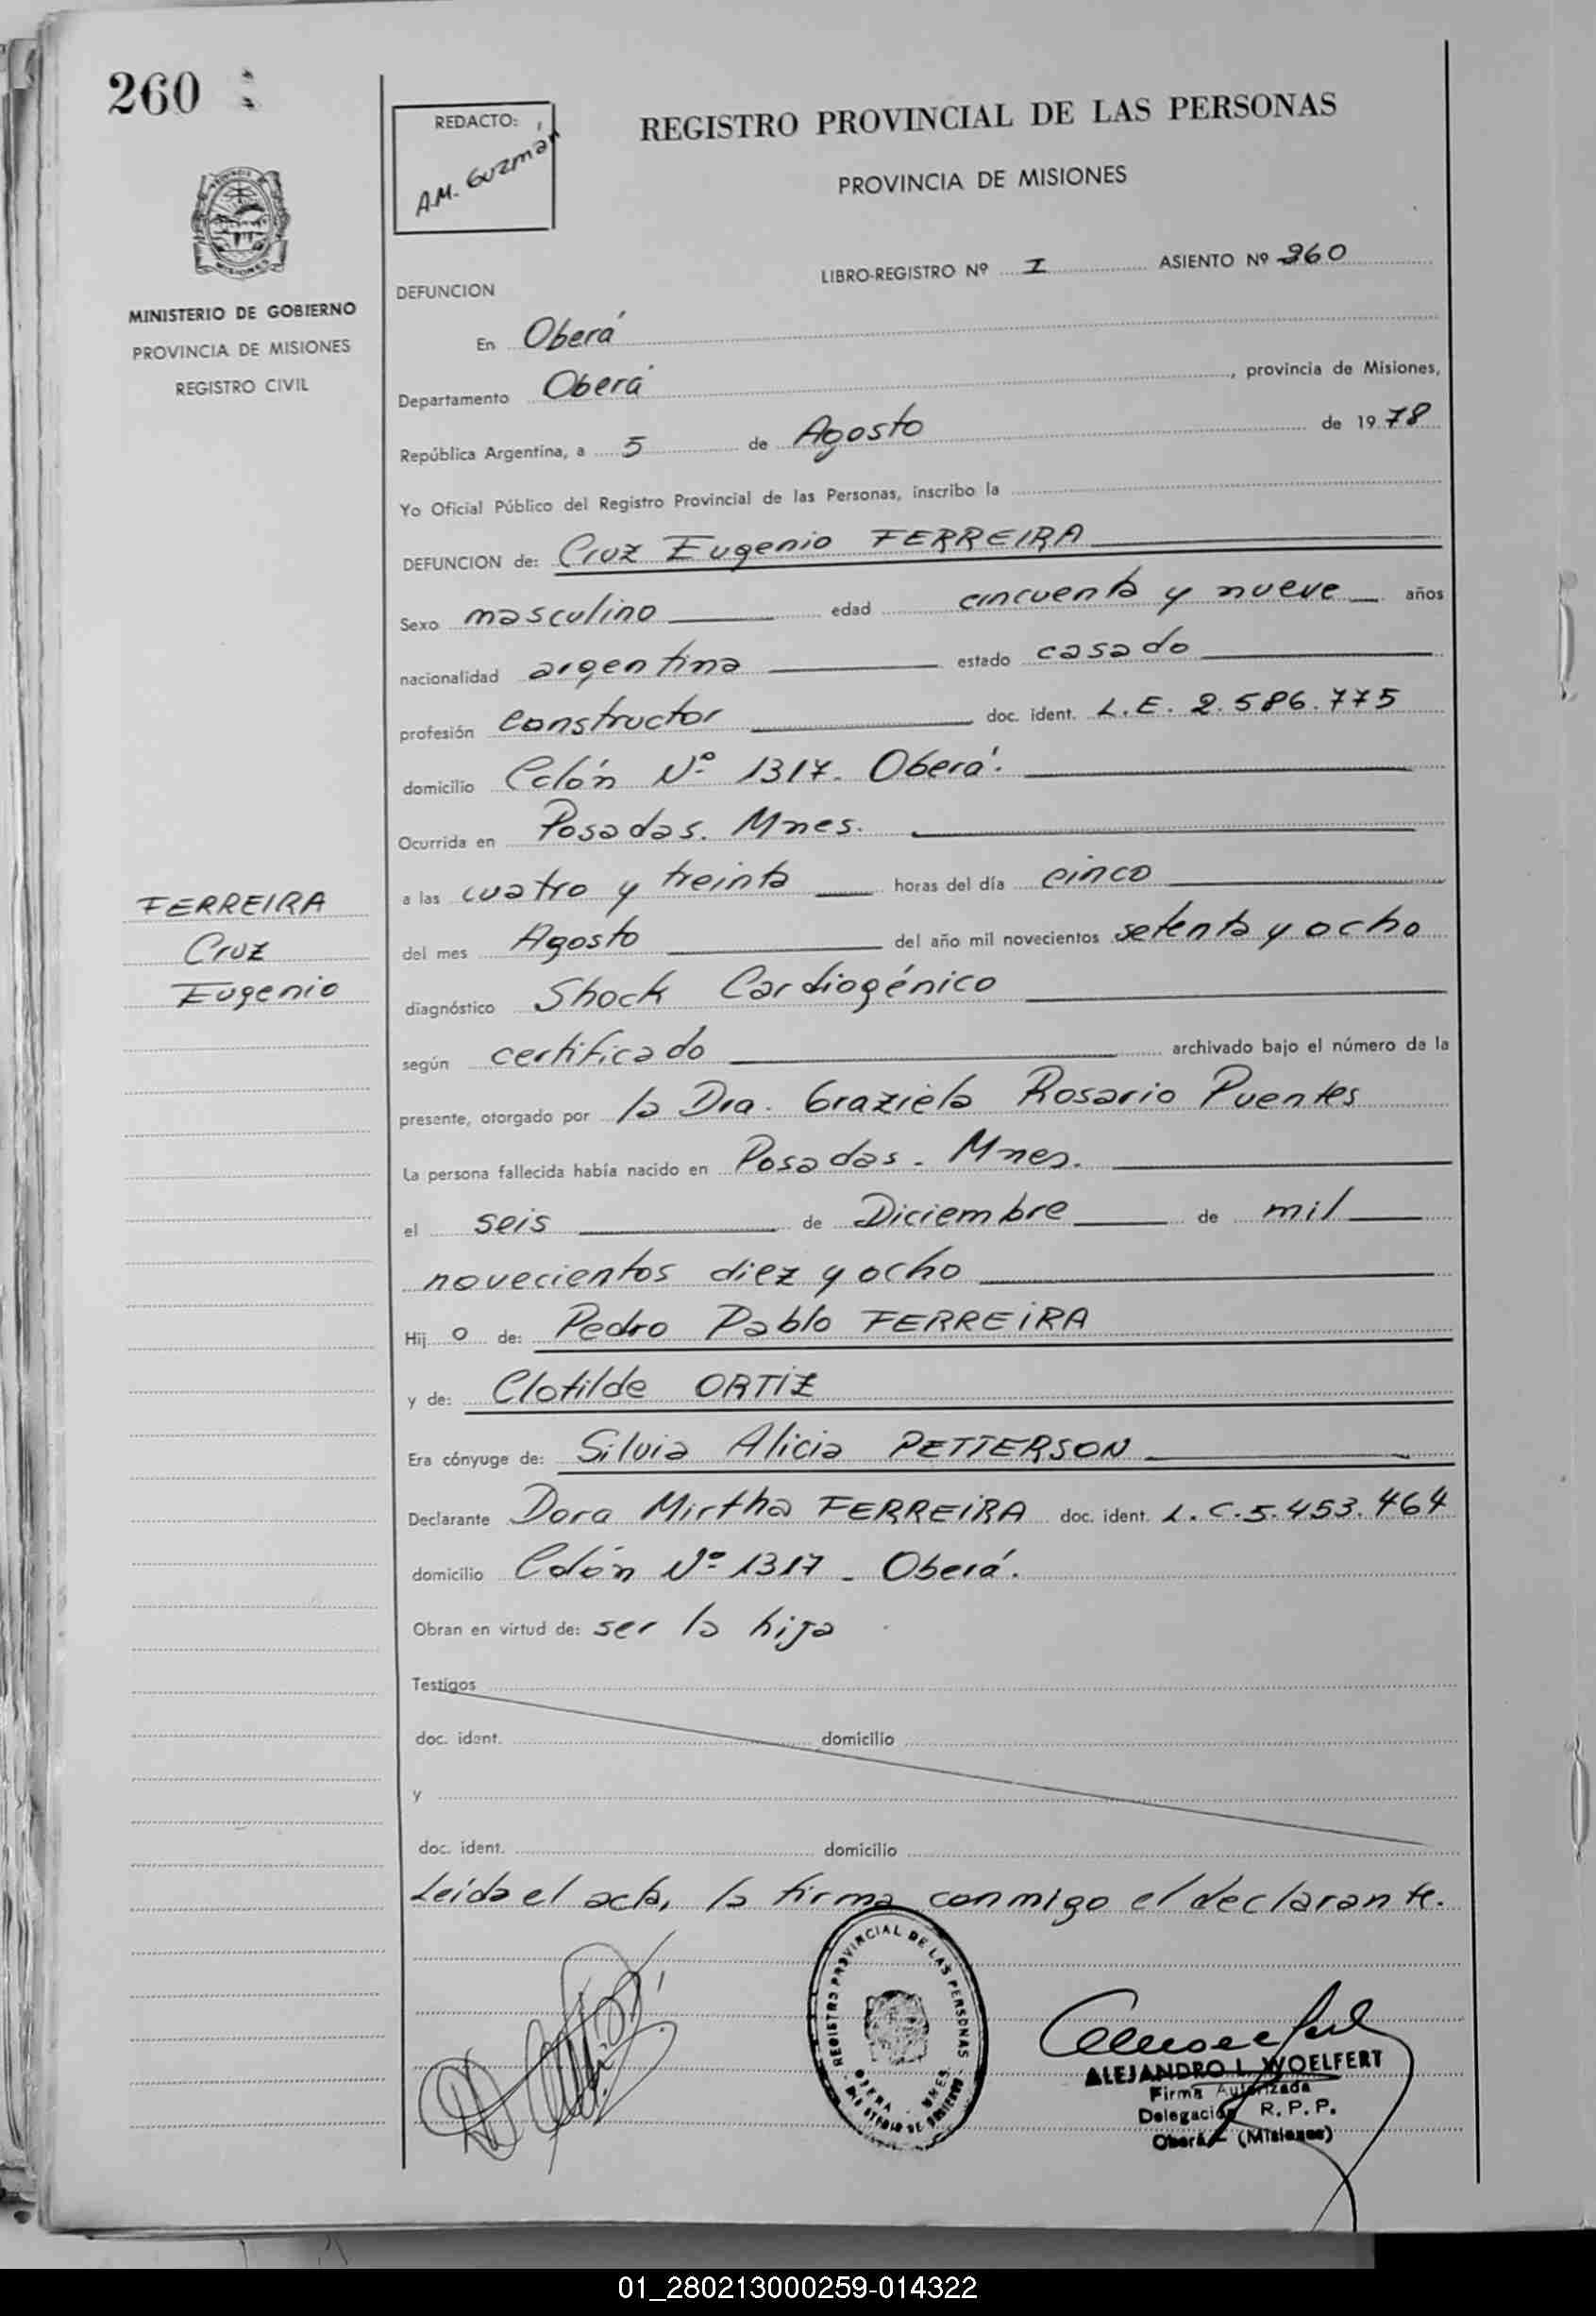 260
REDACTO:
A.M. Guzmán
REGISTRO PROVINCIAL DE LAS PERSONAS
PROVINCIA DE MISIONES
MISIONES
MINISTERIO DE GOBIERNO
PROVINCIA DE MISIONES
REGISTRO CIVIL
LIBRO-REGISTRO Nº I ASIENTO Nº 260
DEFUNCION
En Oberá
Departamento Oberá, provincia de Misiones,
República Argentina, a 5 de Agosto de 1978
Yo Oficial Público del Registro Provincial de las Personas, inscribo la
DEFUNCION de: Cruz Eugenio FERREIRA
Sexo masculino edad cincuenta y nueve años
nacionalidad argentina estado casado
profesión constructor doc. ident. L.E. 2.586.775
domicilio Colón Nº 1317. Oberá.
Ocurrida en Posadas. Mnes.
a las cuatro y treinta horas del día cinco
del mes Agosto del año mil novecientos setenta y ocho
diagnóstico Shock Cardiogénico
según certificado archivado bajo el número de la
presente, otorgado por la Dra. Graziela Rosario Puentes
La persona fallecida había nacido en Posadas. Mnes.
el seis de Diciembre de mil
novecientos diez y ocho
Hijo de: Pedro Pablo FERREIRA
y de: Clotilde ORTIZ
Era cónyuge de: Silvia Alicia PETTERSON
Declarante Dora Mirtha FERREIRA doc. ident. L.C. 5.453.464
domicilio Colón Nº 1317 - Oberá.
Obran en virtud de: ser la hija
Testigos
doc. ident. domicilio
y
doc. ident. domicilio
Leida el acta, la firma conmigo el declarante.
FERREIRA
Cruz
Eugenio
REGISTRO PROVINCIAL DE LAS PERSONAS
OBERA - MNES.
ALEJANDRO L. WOELFERT
Firma Autorizada
Delegación R. P. P.
Oberá (Misiones)
01_280213000259-014322